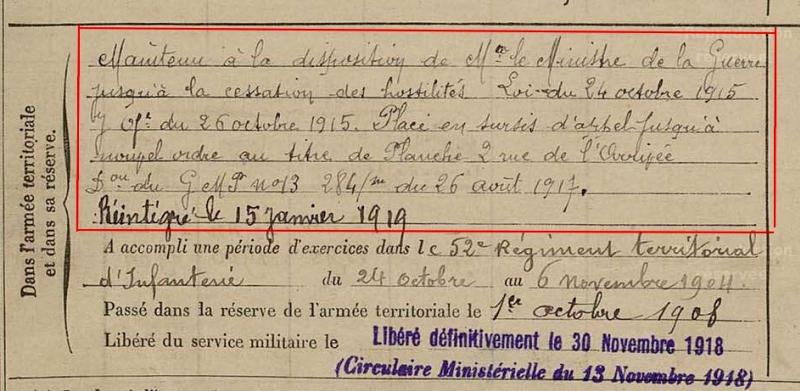 Dans l'armée territoriale
et dans sa réserve.
Maintenu à la disposition de Mr le Ministre de la Guerre
jusqu'à la cessation des hostilités Loi du 24 octobre 1915
du 26 octobre 1915. Placé en sursis d'appel jusqu'à
nouvel ordre au titre de Planche 2 rue de l'
Don du G M P no 13 284/ du 26 août 1917.
Réintégré le 15 janvier 1919
A accompli une période d'exercices dans le 52e Régiment territorial
d'Infanterie du 24 octobre au 6 novembre 1904.
Passé dans la réserve de l'armée territoriale le 1er octobre 1908
Libéré du service militaire le Libéré définitivement le 30 Novembre 1918
(Circulaire Ministérielle du 13 Novembre 1918)